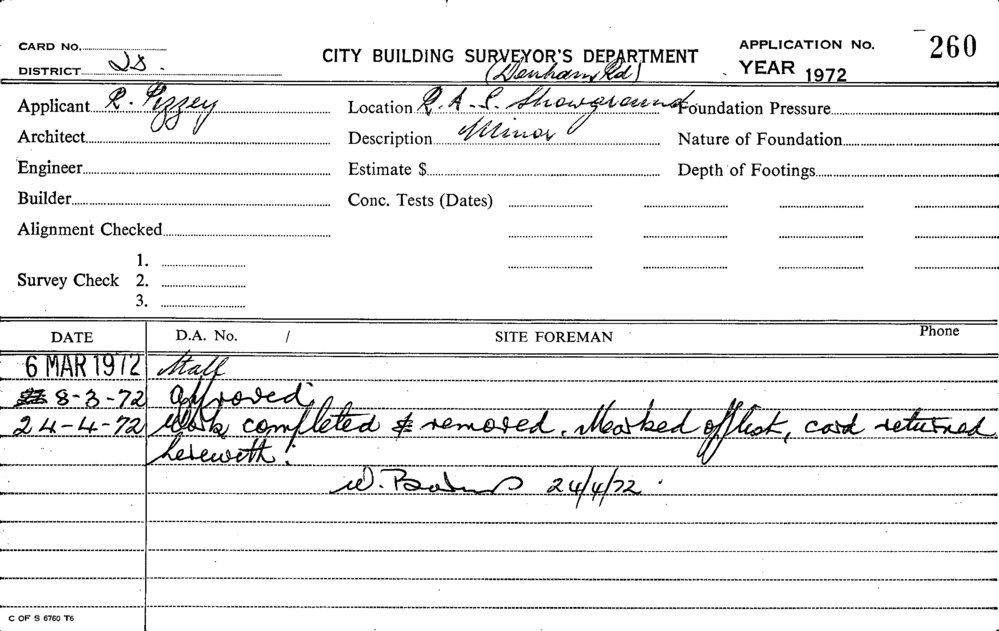 CARD NO.
DISTRICT
CITY BUILDING SURVEYOR'S DEPARTMENT
(Denham Rd)
APPLICATION No. 260
YEAR 1972
Applicant R. Pizzey
Location R. A. S. Showground
Foundation Pressure
Architect
Description Minor
Nature of Foundation
Engineer
Estimate $
Depth of Footings
Builder
Conc. Tests (Dates)
Alignment Checked
Survey Check 1.
2.
3.
DATE D.A. No. / SITE FOREMAN Phone
6 MAR 1972 Stall
8-3-72 Approved
24-4-72 Work completed & removed. Marked off list, card returned
herewith.
24/4/72
C OF S 6760 T6